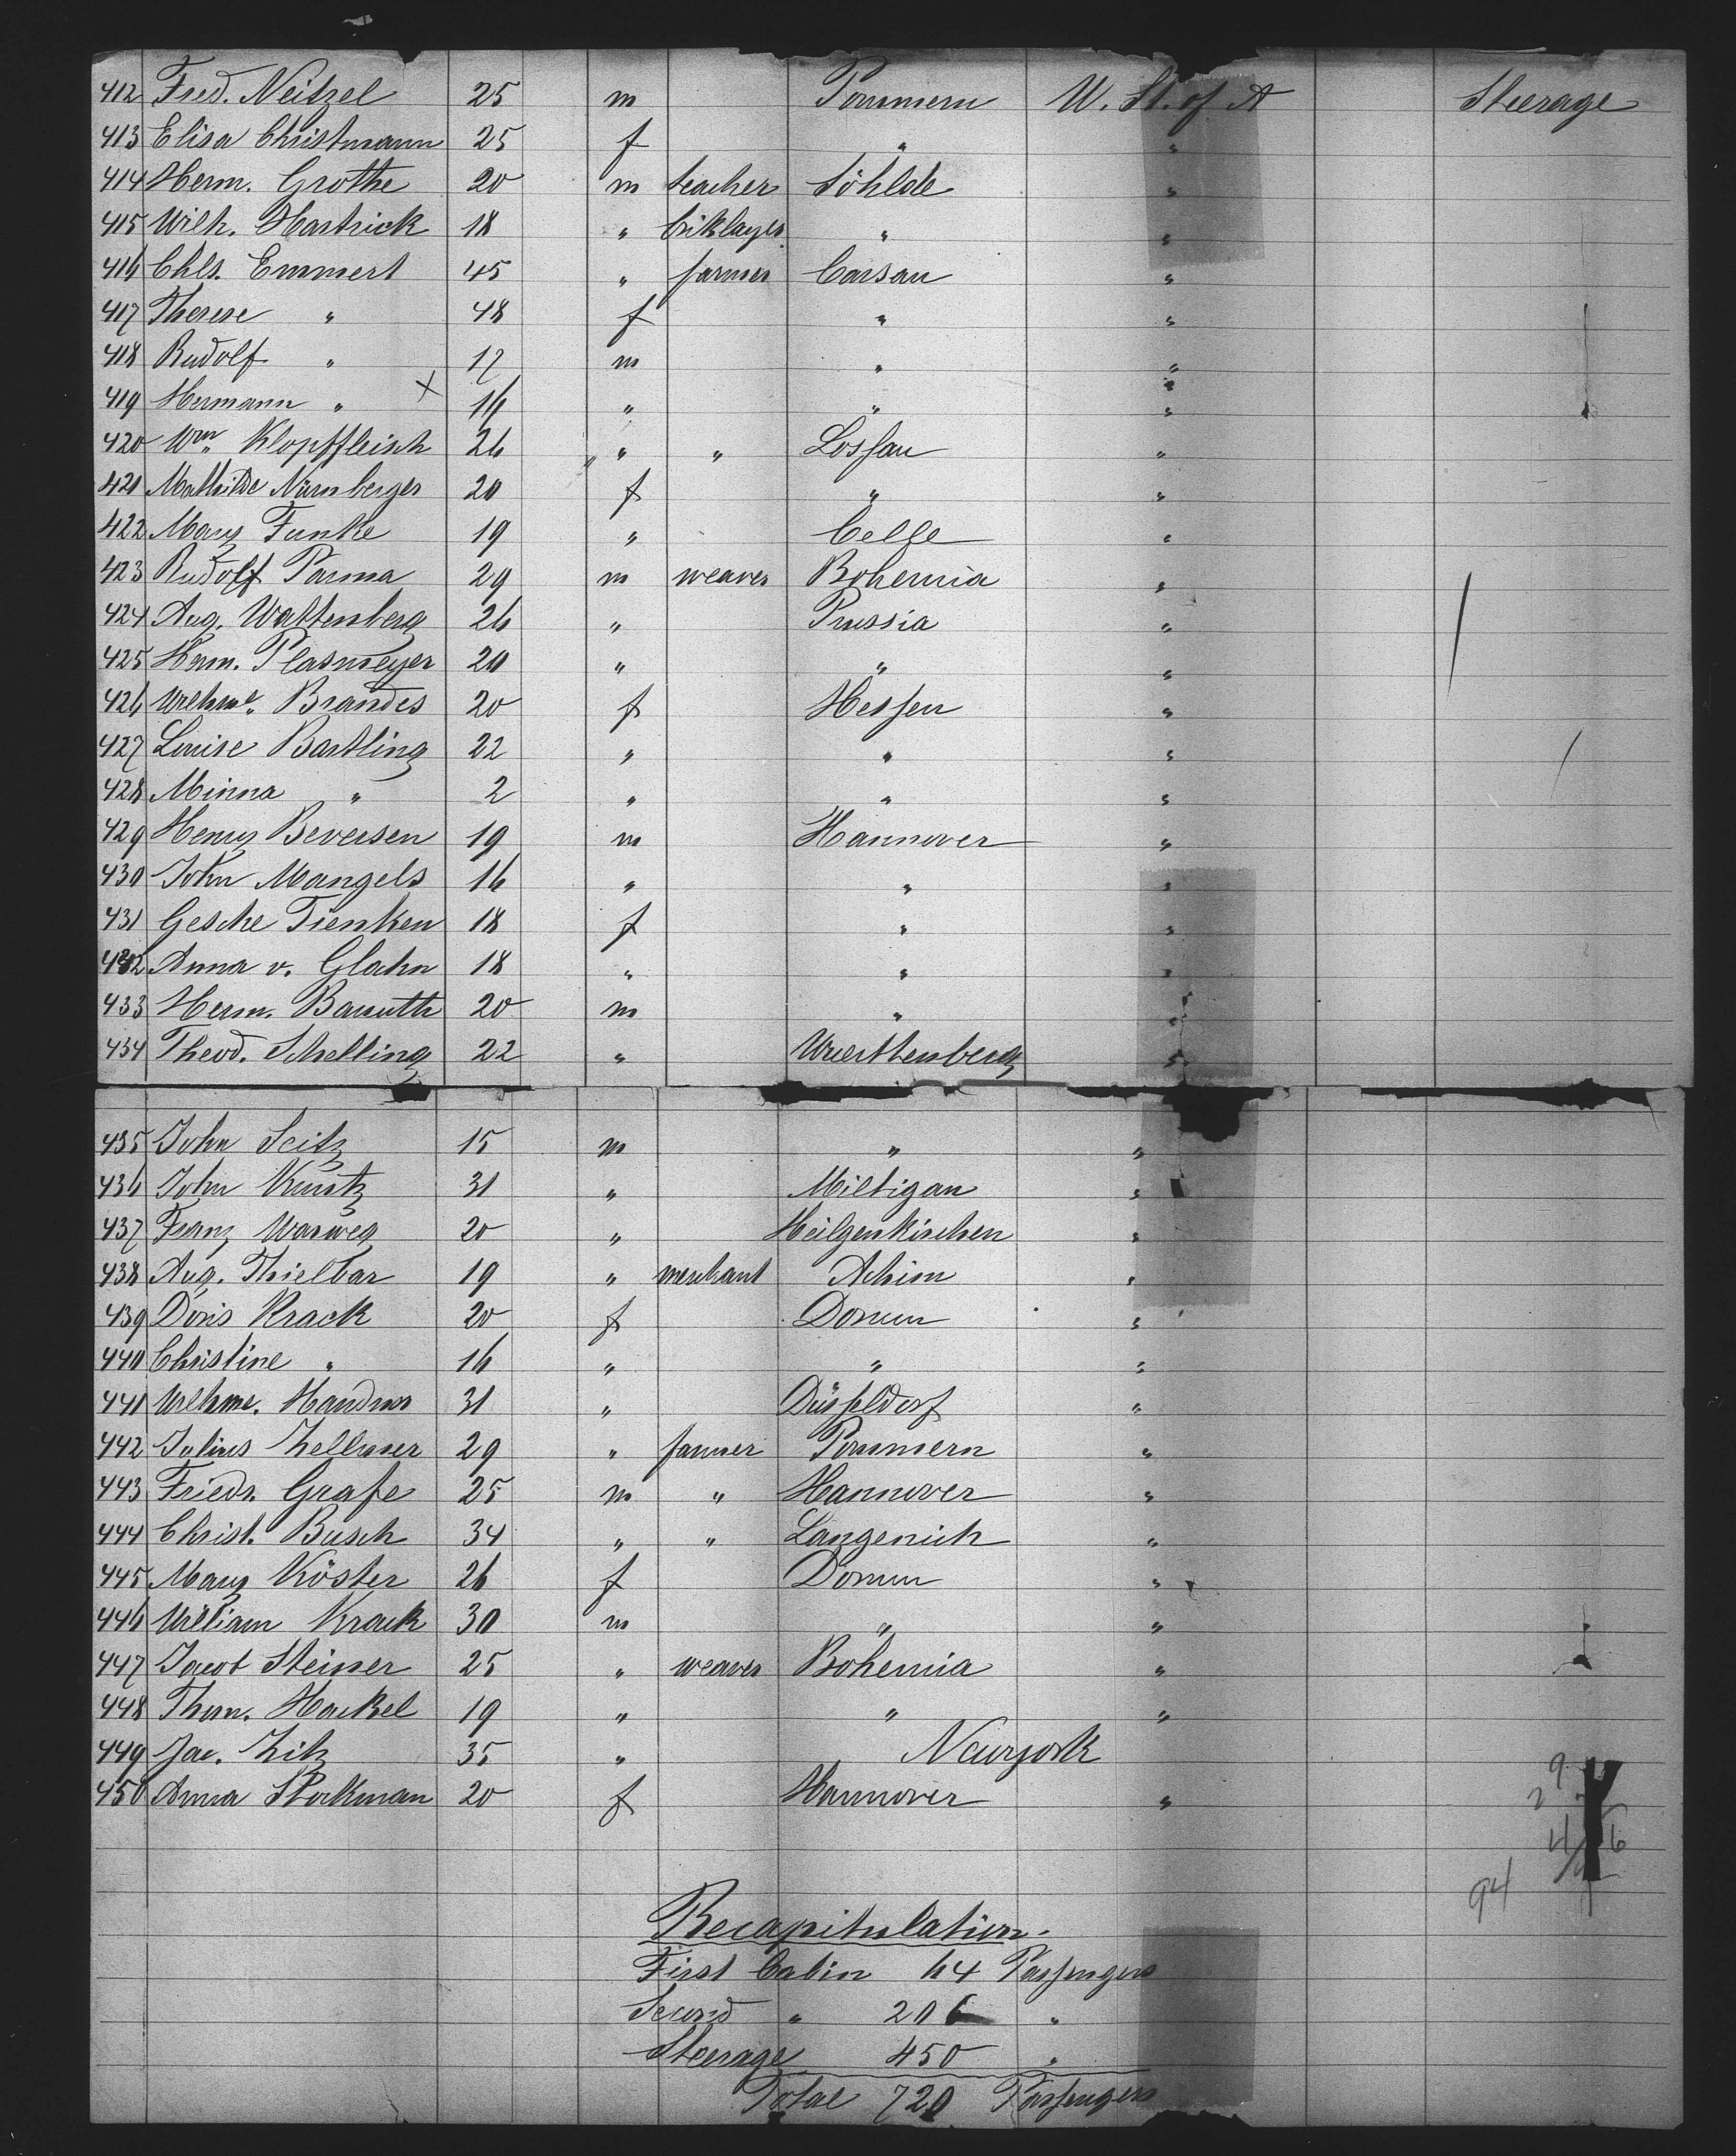 412 Fred. Neitzel 25 m Pommern U. St. of A Steerage
413 Elisa Christmann 25 f " "
414 Herm. Grothe 20 m teacher Söhlde "
415 Wilh. Hastrick 18 " briklayer " "
416 Chls. Emmert 45 " farmer Carsau "
417 Therese " 48 f " "
418 Rudolf " 17 m " "
419 Hermann " X 16 " " "
420 Wm. Klopffleisch 26 " " Lossau "
421 Mathilde Nürnberger 20 f " "
422 Mary Funke 19 " Celle "
423 Rudolf Parma 29 m weaver Bohemia "
424 Aug. Wattenberg 26 " Prussia "
425 Herm. Plasmeyer 20 " " "
426 Wilhme. Brandes 20 f Hessen "
427 Louise Bartling 22 " " "
428 Minna " 2 " " "
429 Henry Beversen 19 m Hannover "
430 John Mangels 16 " " "
431 Gesche Tienken 18 f " "
432 Anna v. Glahn 18 " " "
433 Herm. Banuth 20 m " "
434 Theod. Schelling 22 " Wuerttenberg "
435 John Seitz 15 m " "
436 John Kuntz 31 " Miltigan "
437 Franz Warweg 20 " Heilgenkirchen "
438 Aug. Thielbar 19 " merchant Achim "
439 Doris Krack 20 f Dorum "
440 Christine " 16 " " "
441 Wilhme. 31 " Düsseldorf "
442 Julius Zellmer 29 " farmer Pommern "
443 Friedr. Grafe 25 m " Hannover "
444 Christ. Busch 34 " " Langenich "
445 Mary Köster 26 f Dorum "
446 William Krack 30 m " "
447 Jacob Steiner 25 " weaver Bohemia "
448 Thom. Hackel 19 " " "
449 Jac. Zitz 35 " Newyork
450 Anna Stockman 20 f Hannover "
94
Recapitulation.
First Cabin 64 Passengers
Second " 206 "
Steerage 450 "
Total 720 Passengers